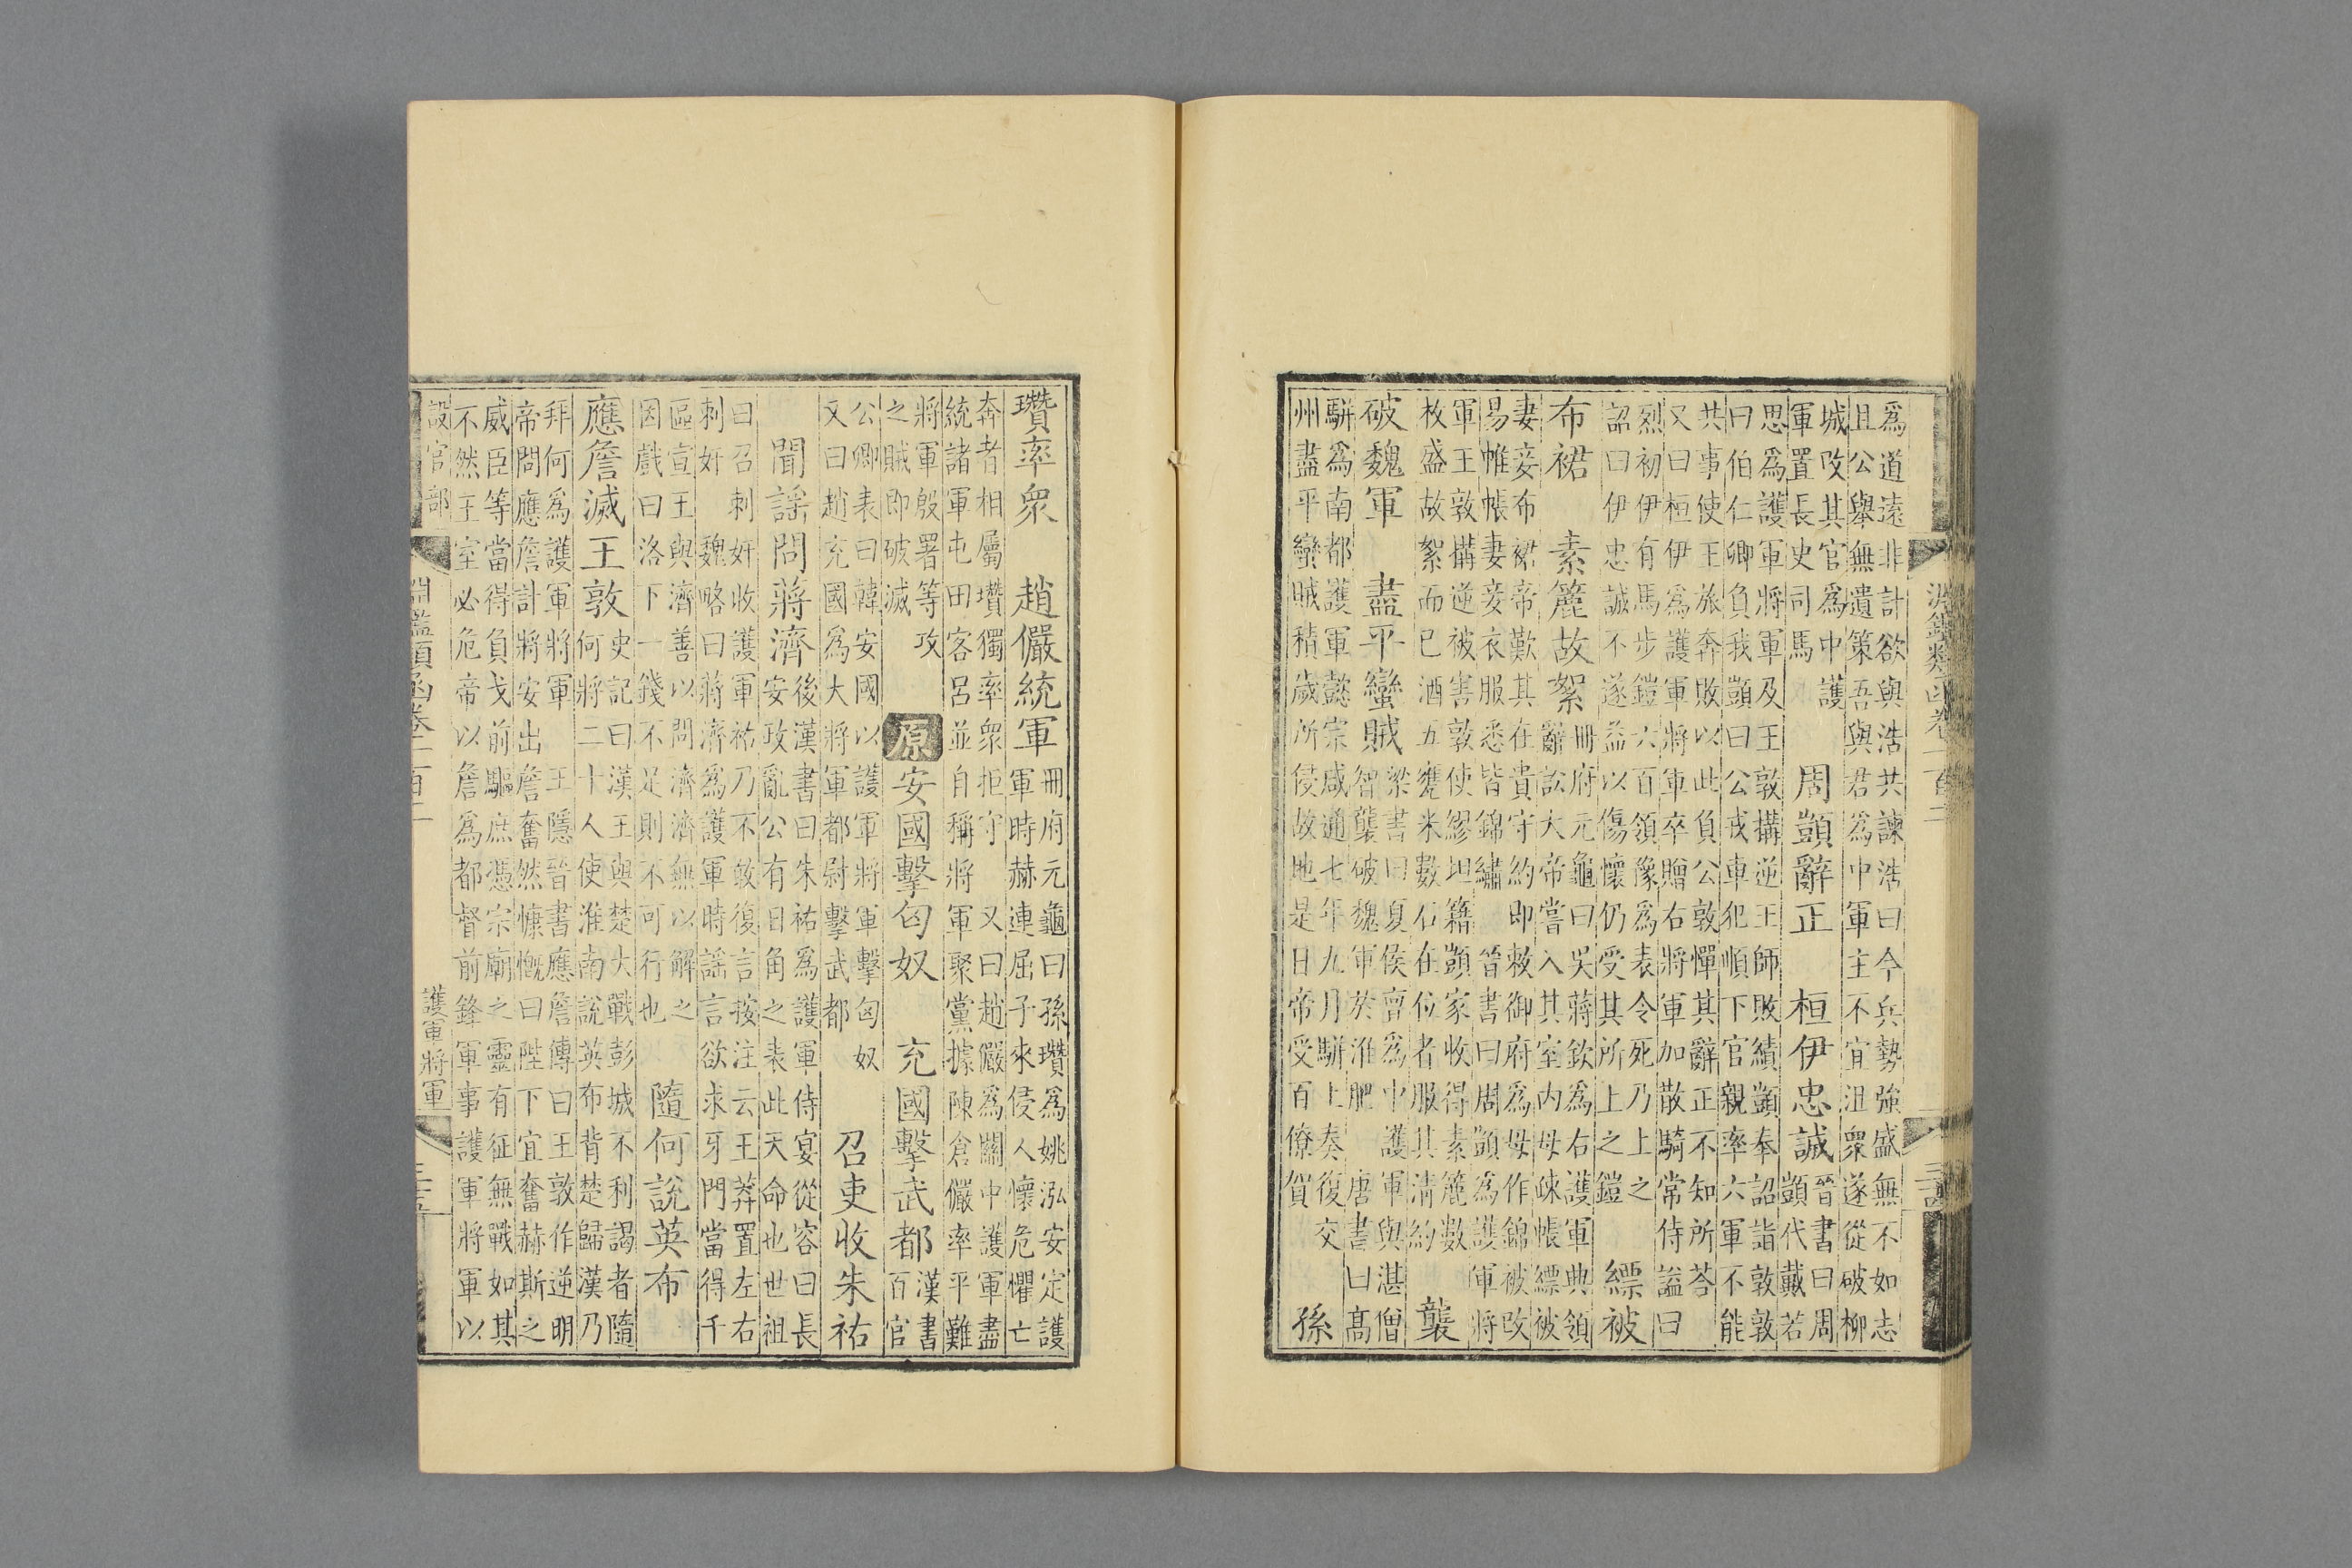 淵鑑類函卷一百二
爲道遠非計欲與浩共諫浩曰今兵勢強盛無不如志
且公舉無遺策吾與君爲中軍主不宜沮衆遂從破柳
城改其官爲中護
軍置長史司馬
周顗辭正　桓伊忠誠
晉書曰周
顗代戴若
思爲護軍將軍及王敦搆逆王師敗績顗奉詔詣敦敦
曰伯仁卿負我顗曰公戎車犯順下官親率六軍不能
共事使王旅奔敗以此負公敦憚其辭正不知所荅
又曰桓伊爲護軍將軍卒贈右將軍加散騎常侍謚曰
烈初伊有馬步鎧六百領豫爲表令死乃上之
詔曰伊忠誠不遂益以傷懷仍受其所上之鎧
縹被
布裙　素簏故絮
冊府元龜曰吳蔣欽爲右護軍典領
辭訟大帝嘗入其室内母疎帳縹被
妻妾布裙帝歎其在貴守約即敕御府爲母作錦被改
易帷帳妻妾衣服悉皆錦繡　晉書曰周顗爲護軍將
軍王敦搆逆被害敦使繆坦籍顗家收得素簏數
枚盛故絮而已酒五甕米數石在位者服其清約
襲
破魏軍　盡平蠻賊
梁書曰夏侯亶爲中護軍與湛僧
智襲破魏軍於淮肥　唐書曰高
駢爲南都護軍懿宗咸通七年九月駢上奏復交
州盡平蠻賊積歲所侵故地是日帝受百僚賀
孫
瓚率衆　趙儼統軍
冊府元龜曰孫瓚爲姚泓安定護
軍時赫連屈子來侵人懷危懼亡
奔者相屬瓚獨率衆拒守　又曰趙儼爲關中護軍盡
統諸軍屯田客呂並自稱將軍聚黨據陳倉儼率平難
將軍殷署等攻
之賊即破滅
原安國擊匈奴　充國擊武都
漢書
百官
公卿表曰韓安國以護軍將軍擊匈奴
又曰趙充國爲大將軍都尉擊武都
召吏收朱祐
聞謡問蔣濟
後漢書曰朱祐爲護軍侍宴從容曰長
安政亂公有日角之表此天命也世祖
曰召刺奸收護軍祐乃不敢復言按注云王莽置左右
刺奸　魏略曰蔣濟爲護軍時謡言欲求牙門當得千
區宣王與濟善以問濟濟無以解之
因戲曰洛下一錢不足則不可行也
隨何說英布
應詹滅王敦
史記曰漢王與楚大戰彭城不利謁者隨
何將二十人使淮南說英布背楚歸漢乃
拜何爲護軍將軍　王隱晉書應詹傳曰王敦作逆明
帝問應詹計將安出詹奮然慷慨曰陛下宜奮赫斯之
威臣等當得負戈前驅庶憑宗廟之靈有征無戰如其
不然王室必危帝以詹爲都督前鋒軍事護軍將軍以
設官部
護軍將軍